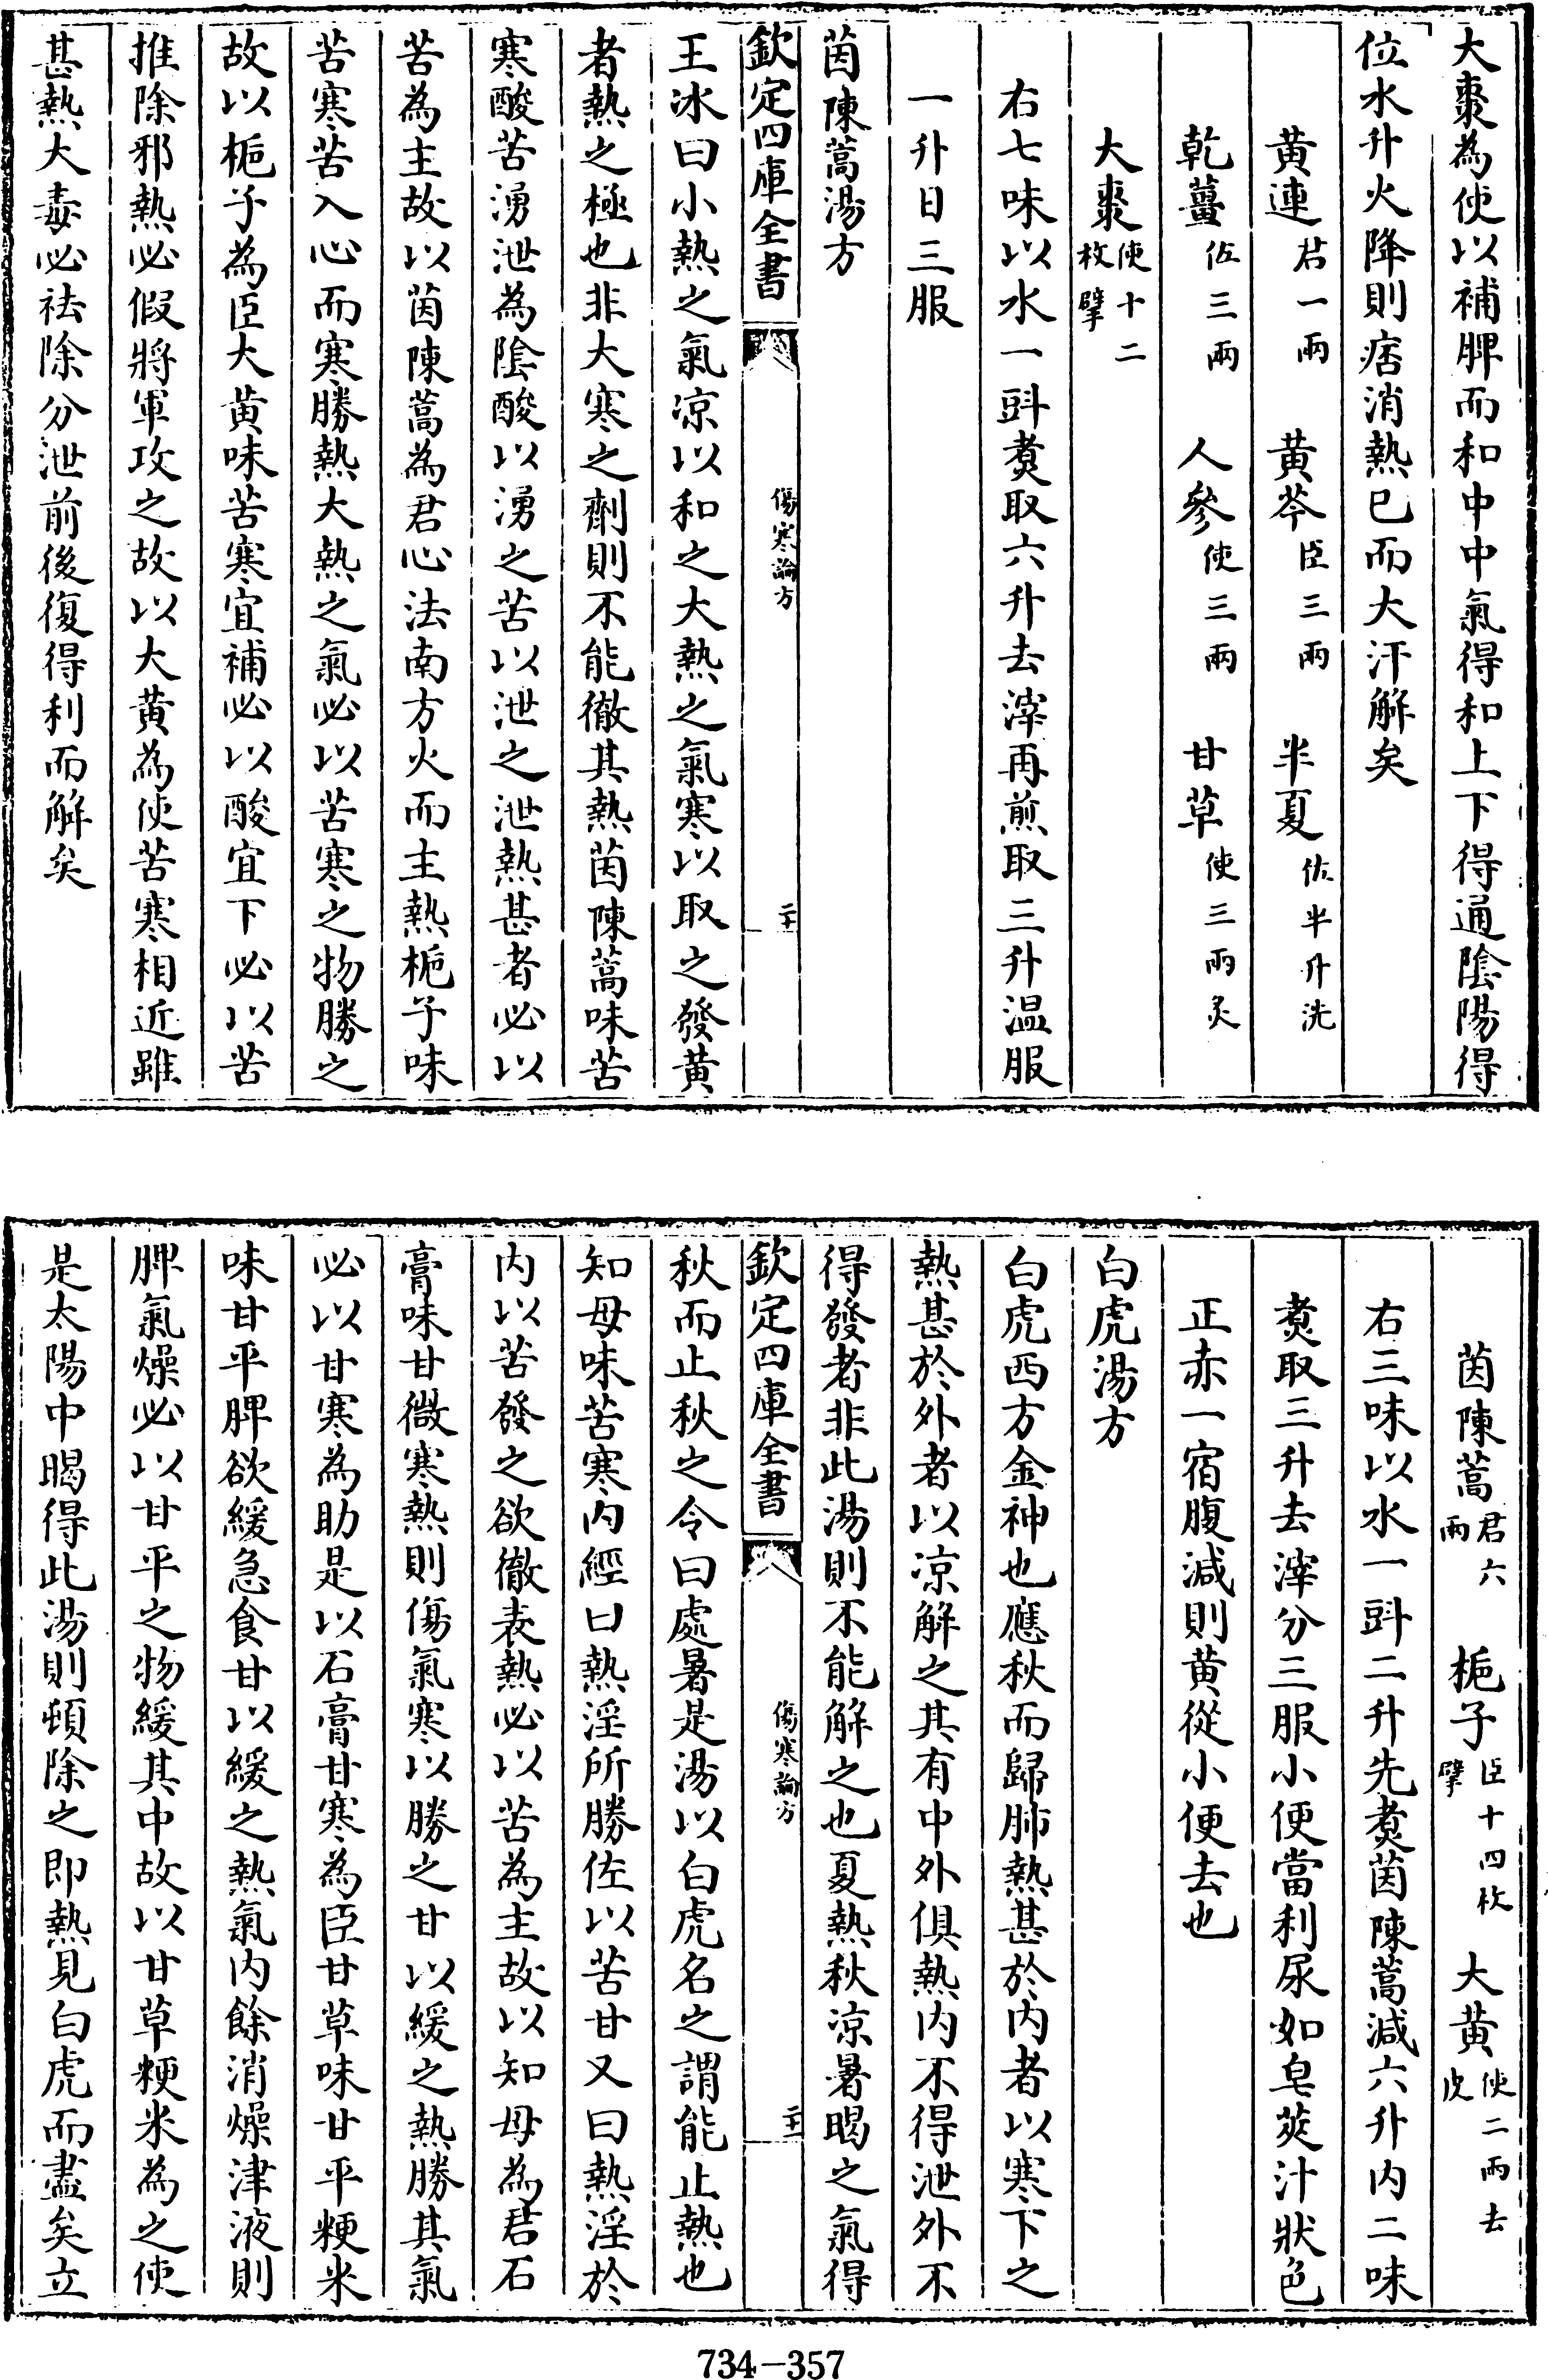 大棗為使以補脾而和中中氣得和上下得通陰陽得
位水升火降則痞消熱已而大汗解矣
黄連君一兩　黄芩臣三兩　半夏佐半升洗
乾薑佐三兩　人參使三兩　甘草使三兩炙
大棗使十二枚擘
右七味以水一㪷煑取六升去滓再煎取三升温服
一升日三服
茵陳蒿湯方
欽定四庫全書　傷寒論方　二十
王冰曰小熱之氣凉以和之大熱之氣寒以取之發黄
者熱之極也非大寒之劑則不能徹其熱茵陳蒿味苦
寒酸苦湧泄為陰酸以湧之苦以泄之泄熱甚者必以
苦為主故以茵陳蒿為君心法南方火而主熱梔子味
苦寒苦入心而寒勝熱大熱之氣必以苦寒之物勝之
故以梔子為臣大黄味苦寒宜補必以酸宜下必以苦
推除邪熱必假將軍攻之故以大黄為使苦寒相近雖
甚熱大毒必祛除分泄前後復得利而解矣
茵陳蒿君六兩　梔子臣十四枚擘　大黄使二兩去皮
右三味以水一㪷二升先煑茵陳蒿減六升内二味
煑取三升去滓分三服小便當利尿如皂莢汁狀色
正赤一宿腹減則黄從小便去也
白虎湯方
白虎西方金神也應秋而歸肺熱甚於内者以寒下之
熱甚於外者以凉解之其有中外俱熱内不得泄外不
得發者非此湯則不能解之也夏熱秋凉暑暍之氣得
欽定四庫全書　傷寒論方　二十一
秋而止秋之令曰處暑是湯以白虎名之謂能止熱也
知母味苦寒内經曰熱淫所勝佐以苦甘又曰熱淫於
内以苦發之欲徹表熱必以苦為主故以知母為君石
膏味甘微寒熱則傷氣寒以勝之甘以緩之熱勝其氣
必以甘寒為助是以石膏甘寒為臣甘草味甘平粳米
味甘平脾欲緩急食甘以緩之熱氣内餘消燥津液則
脾氣燥必以甘平之物緩其中故以甘草粳米為之使
是太陽中暍得此湯則頓除之即熱見白虎而盡矣立
734-357